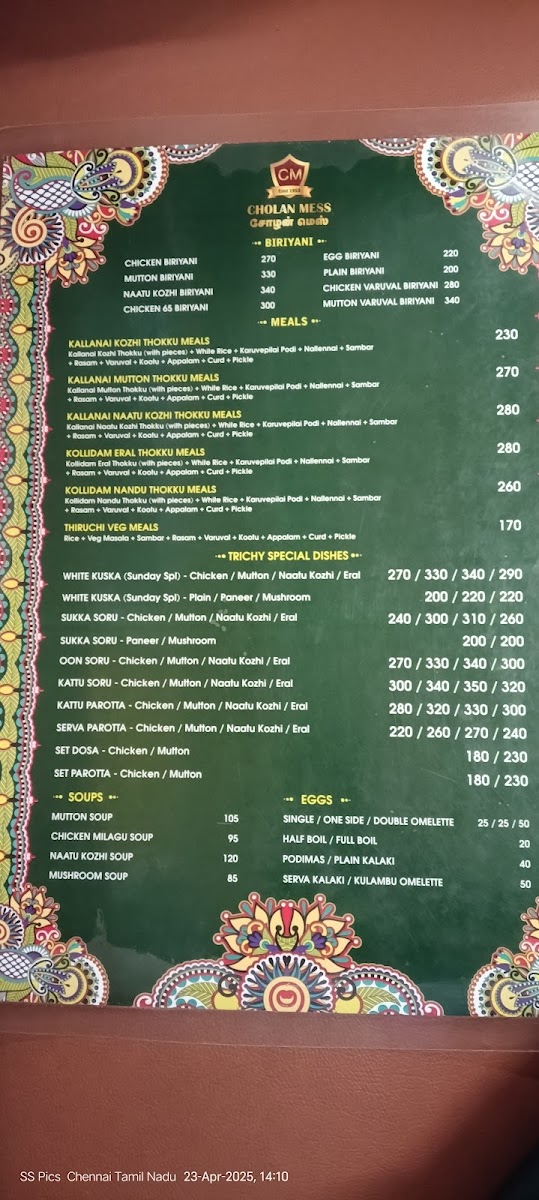 CM
Estd 1993
CHOLAN MESS
சோழன் மெஸ்
BIRIYANI
CHICKEN BIRIYANI 270
MUTTON BIRIYANI 330
NAATU KOZHI BIRIYANI 340
CHICKEN 65 BIRIYANI 300
EGG BIRIYANI 220
PLAIN BIRIYANI 200
CHICKEN VARUVAL BIRIYANI 280
MUTTON VARUVAL BIRIYANI 340
MEALS
KALLANAI KOZHI THOKKU MEALS 230
Kallanai Kozhi Thokku (with pieces) + White Rice + Karuvepilai Podi + Nallennai + Sambar
+ Rasam + Varuval + Kootu + Appalam + Curd + Pickle
KALLANAI MUTTON THOKKU MEALS 270
Kallanai Mutton Thokku (with pieces) + White Rice + Karuvepilai Podi + Nallennai + Sambar
+ Rasam + Varuval + Kootu + Appalam + Curd + Pickle
KALLANAI NAATU KOZHI THOKKU MEALS 280
Kallanai Naatu Kozhi Thokku (with pieces) + White Rice + Karuvepilai Podi + Nallennai + Sambar
+ Rasam + Varuval + Kootu + Appalam + Curd + Pickle
KOLLIDAM ERAL THOKKU MEALS 280
Kollidam Eral Thokku (with pieces) + White Rice + Karuvepilai Podi + Nallennai + Sambar
+ Rasam + Varuval + Kootu + Appalam + Curd + Pickle
KOLLIDAM NANDU THOKKU MEALS 260
Kollidam Nandu Thokku (with pieces) + White Rice + Karuvepilai Podi + Nallennai + Sambar
+ Rasam + Varuval + Kootu + Appalam + Curd + Pickle
THIRUCHI VEG MEALS 170
Rice + Veg Masala + Sambar + Rasam + Varuval + Kootu + Appalam + Curd + Pickle
TRICHY SPECIAL DISHES
WHITE KUSKA (Sunday Spl) - Chicken / Mutton / Naatu Kozhi / Eral 270 / 330 / 340 / 290
WHITE KUSKA (Sunday Spl) - Plain / Paneer / Mushroom 200 / 220 / 220
SUKKA SORU - Chicken / Mutton / Naatu Kozhi / Eral 240 / 300 / 310 / 260
SUKKA SORU - Paneer / Mushroom 200 / 200
OON SORU - Chicken / Mutton / Naatu Kozhi / Eral 270 / 330 / 340 / 300
KATTU SORU - Chicken / Mutton / Naatu Kozhi / Eral 300 / 340 / 350 / 320
KATTU PAROTTA - Chicken / Mutton / Naatu Kozhi / Eral 280 / 320 / 330 / 300
SERVA PAROTTA - Chicken / Mutton / Naatu Kozhi / Eral 220 / 260 / 270 / 240
SET DOSA - Chicken / Mutton 180 / 230
SET PAROTTA - Chicken / Mutton 180 / 230
SOUPS
MUTTON SOUP 105
CHICKEN MILAGU SOUP 95
NAATU KOZHI SOUP 120
MUSHROOM SOUP 85
EGGS
SINGLE / ONE SIDE / DOUBLE OMELETTE 25 / 25 / 50
HALF BOIL / FULL BOIL 20
PODIMAS / PLAIN KALAKI 40
SERVA KALAKI / KULAMBU OMELETTE 50
SS Pics Chennai Tamil Nadu 23-Apr-2025, 14:10